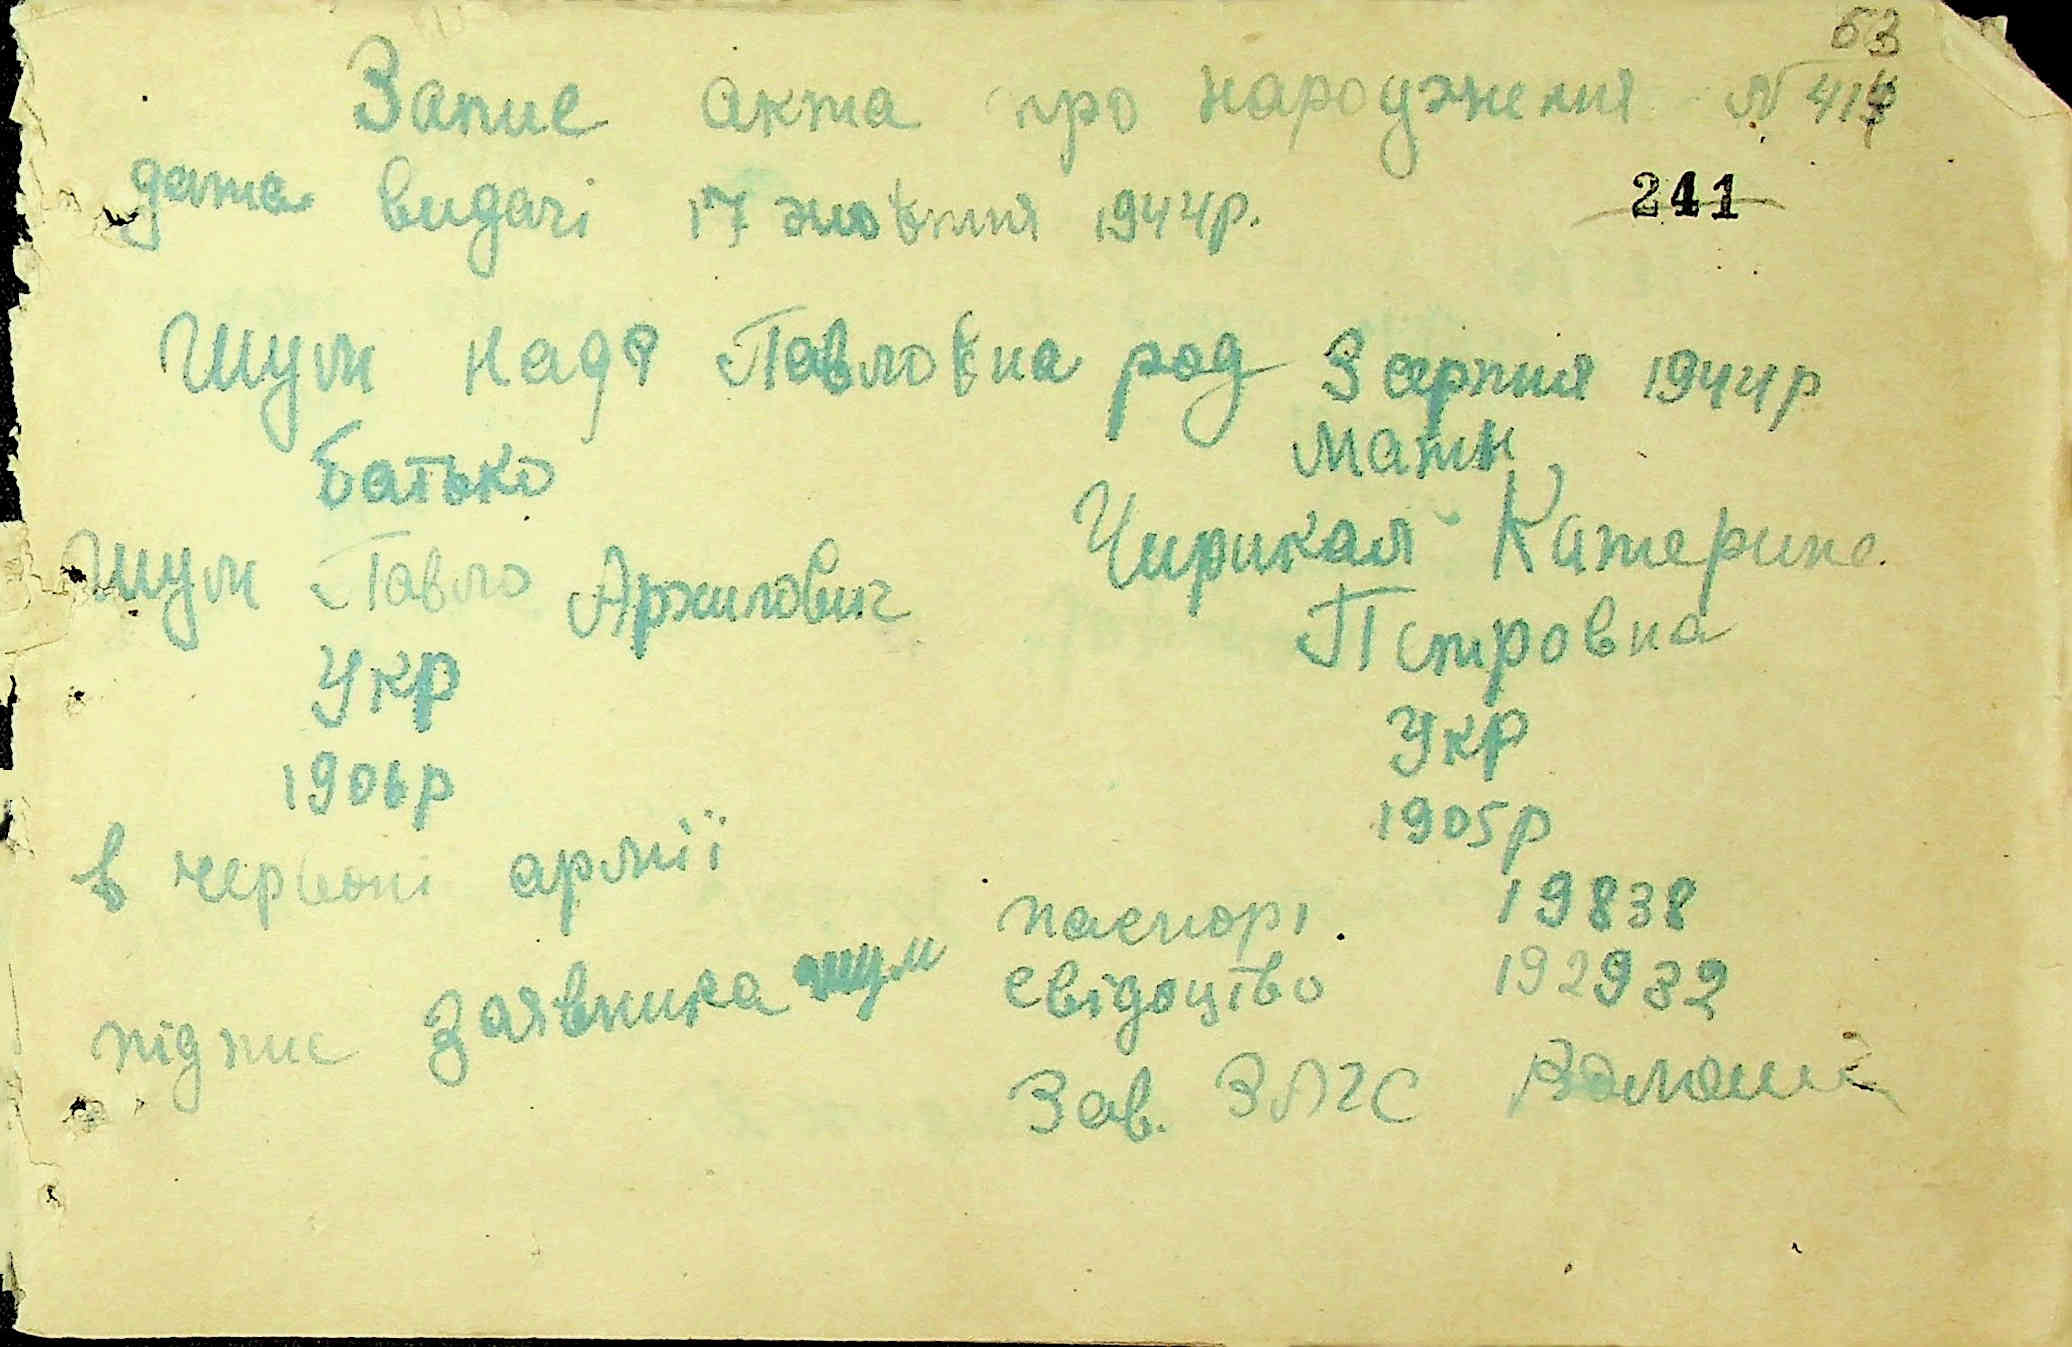 63
Запис акта про народження N
дата видачі 17 жовтня 1944р.
241
Шум Надя Павловна род 3 серпня 1944р
Батько
Мати
Шум Павло Архипович
Чирикал Катерина
Петровна
Укр
Укр
1906р
1905р
в червоні армії
паспорт 19838
свідоцтво 192932
підпис заявника Шум
Зав. ЗАГС